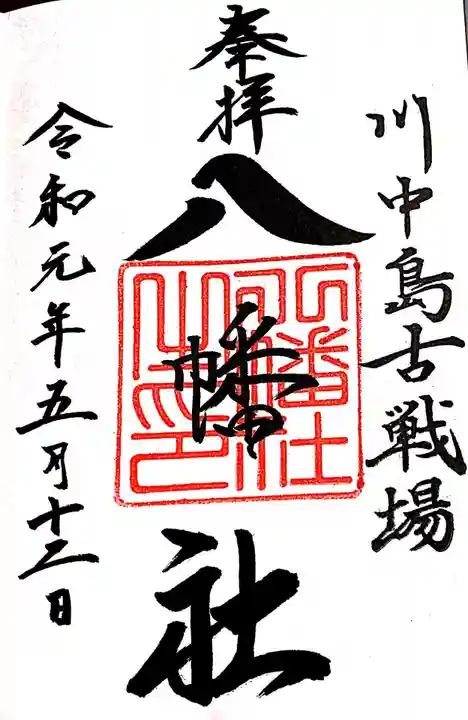 川中島古戦場
奉拝
八幡社
令和元年五月十三日